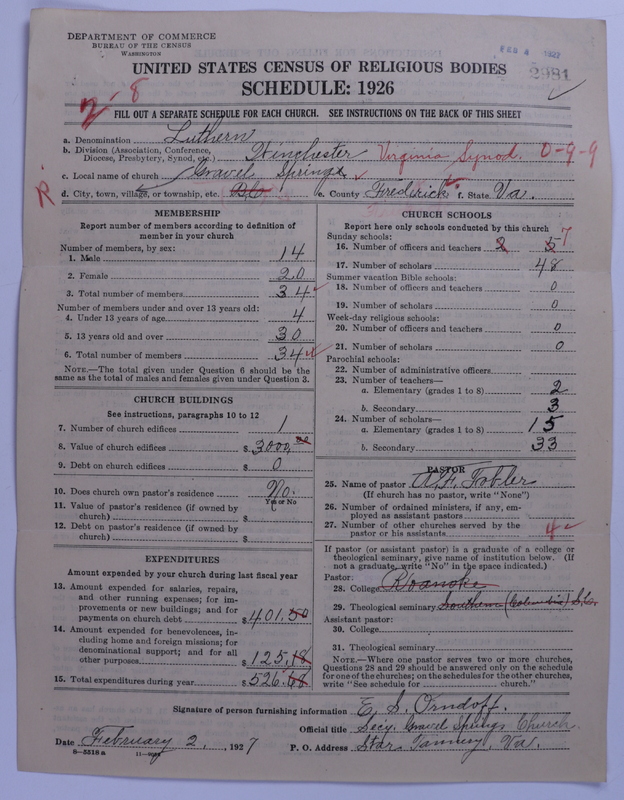 DEPARTMENT OF COMMERCE
BUREAU OF THE CENSUS
WASHINGTON
FEB 4 1927
2981
UNITED STATES CENSUS OF RELIGIOUS BODIES
SCHEDULE: 1926
2-8
FILL OUT A SEPARATE SCHEDULE FOR EACH CHURCH. SEE INSTRUCTIONS ON THE BACK OF THIS SHEET
a. Denomination Luthern
b. Division (Association, Conference, Diocese, Presbytery, Synod, etc.) Winchester Virginia Synod. 0-9-9
c. Local name of church Gravel Springs
R
d. City, town, village, or township, etc. e. County Frederick f. State Va.
MEMBERSHIP
Report number of members according to definition of member in your church
Number of members, by sex:
1. Male 14
2. Female 20
3. Total number of members 34
Number of members under and over 13 years old:
4. Under 13 years of age 4
5. 13 years old and over 30
6. Total number of members 34
NOTE.—The total given under Question 6 should be the same as the total of males and females given under Question 3.
CHURCH BUILDINGS
See instructions, paragraphs 10 to 12
7. Number of church edifices 1
8. Value of church edifices $ 3000.00
9. Debt on church edifices $ 0
10. Does church own pastor's residence No.
Yes or No
11. Value of pastor's residence (if owned by church) $
12. Debt on pastor's residence (if owned by church) $
EXPENDITURES
Amount expended by your church during last fiscal year
13. Amount expended for salaries, repairs, and other running expenses; for improvements or new buildings; and for payments on church debt $ 401.50
14. Amount expended for benevolences, including home and foreign missions; for denominational support; and for all other purposes $ 125.18
15. Total expenditures during year $ 526.68
CHURCH SCHOOLS
Report here only schools conducted by this church
Sunday schools:
16. Number of officers and teachers 2 5 7
17. Number of scholars 48
Summer vacation Bible schools:
18. Number of officers and teachers 0
19. Number of scholars 0
Week-day religious schools:
20. Number of officers and teachers 0
21. Number of scholars 0
Parochial schools:
22. Number of administrative officers
23. Number of teachers—
a. Elementary (grades 1 to 8) 2
b. Secondary 3
24. Number of scholars—
a. Elementary (grades 1 to 8) 15
b. Secondary 33
PASTOR
25. Name of pastor
(If church has no pastor, write "None")
26. Number of ordained ministers, if any, employed as assistant pastors
27. Number of other churches served by the pastor or his assistants 4
If pastor (or assistant pastor) is a graduate of a college or theological seminary, give name of institution below. (If not a graduate, write "No" in the space indicated.)
Pastor:
28. College Roanoke
29. Theological seminary Southern (Columbia) S.C.
Assistant pastor:
30. College
31. Theological seminary
NOTE.—Where one pastor serves two or more churches, Questions 28 and 29 should be answered only on the schedule for one of the churches; on the schedules for the other churches, write "See schedule for church."
Signature of person furnishing information E. S. Orndoff.
Official title Secy. Gravel Springs Church
Date February 2, 1927 P. O. Address Star Tannery, Va.
8-5518 a